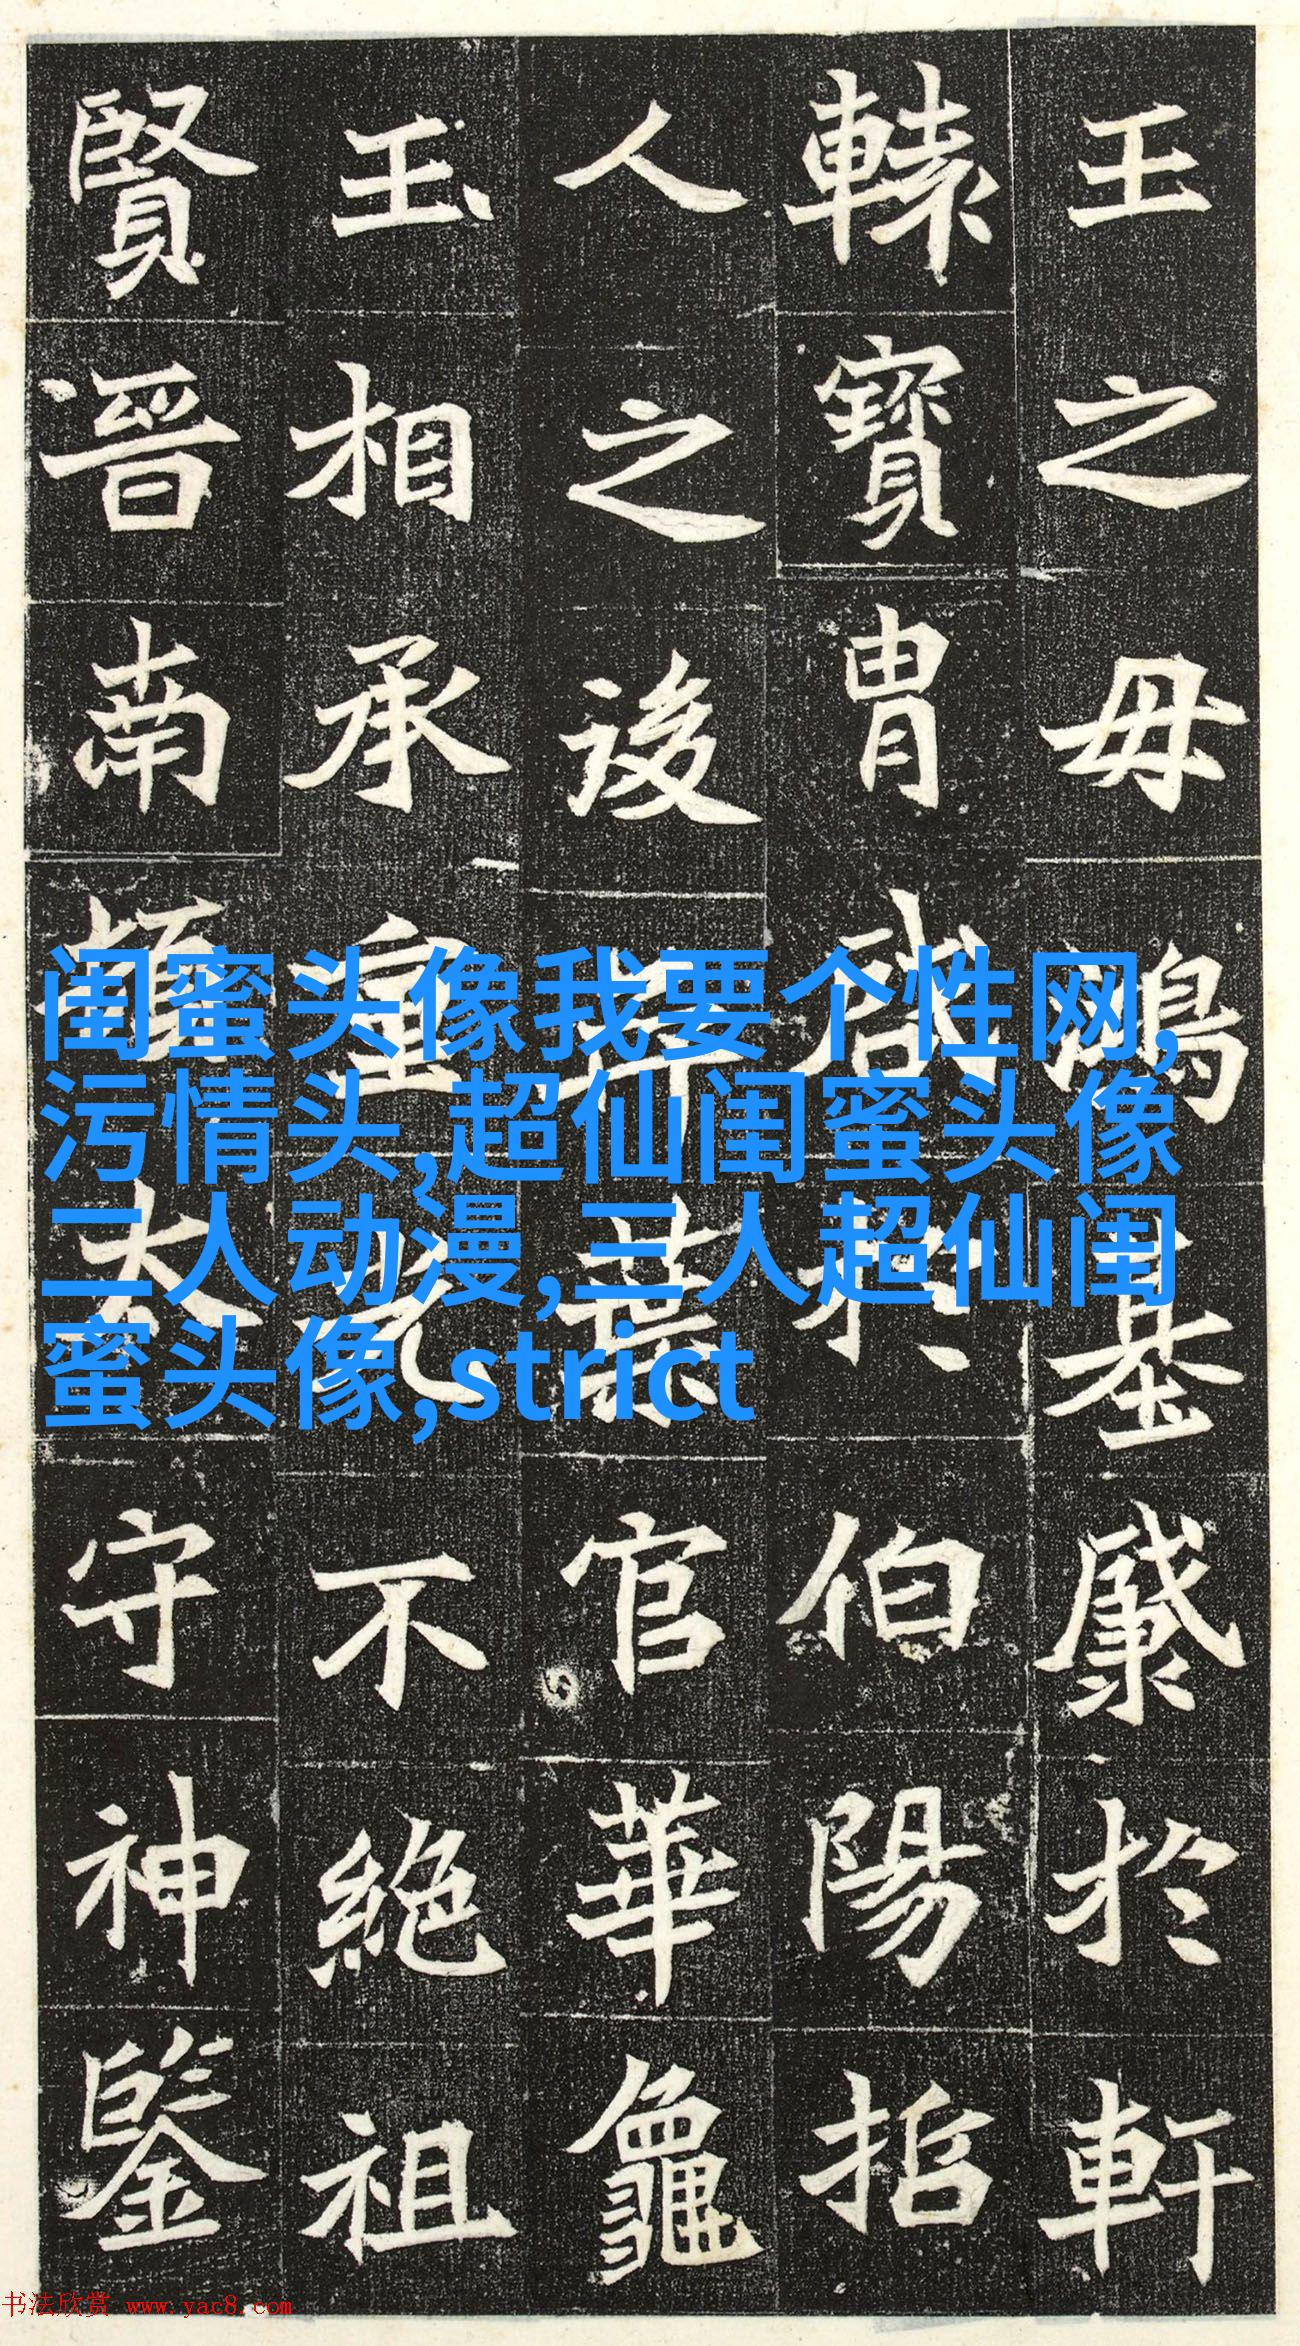 王之毋鴻基於軒
轅寶胄啟於伯陽
人之後葉官華龜
玉相承不絕祖
賢晉南頓太守神鑒
闺蜜头像我要个性网,
污情头,超仙闺蜜头像
二人动漫,三人超仙闺
蜜头像,strict
书法欣赏 www.yac8.com